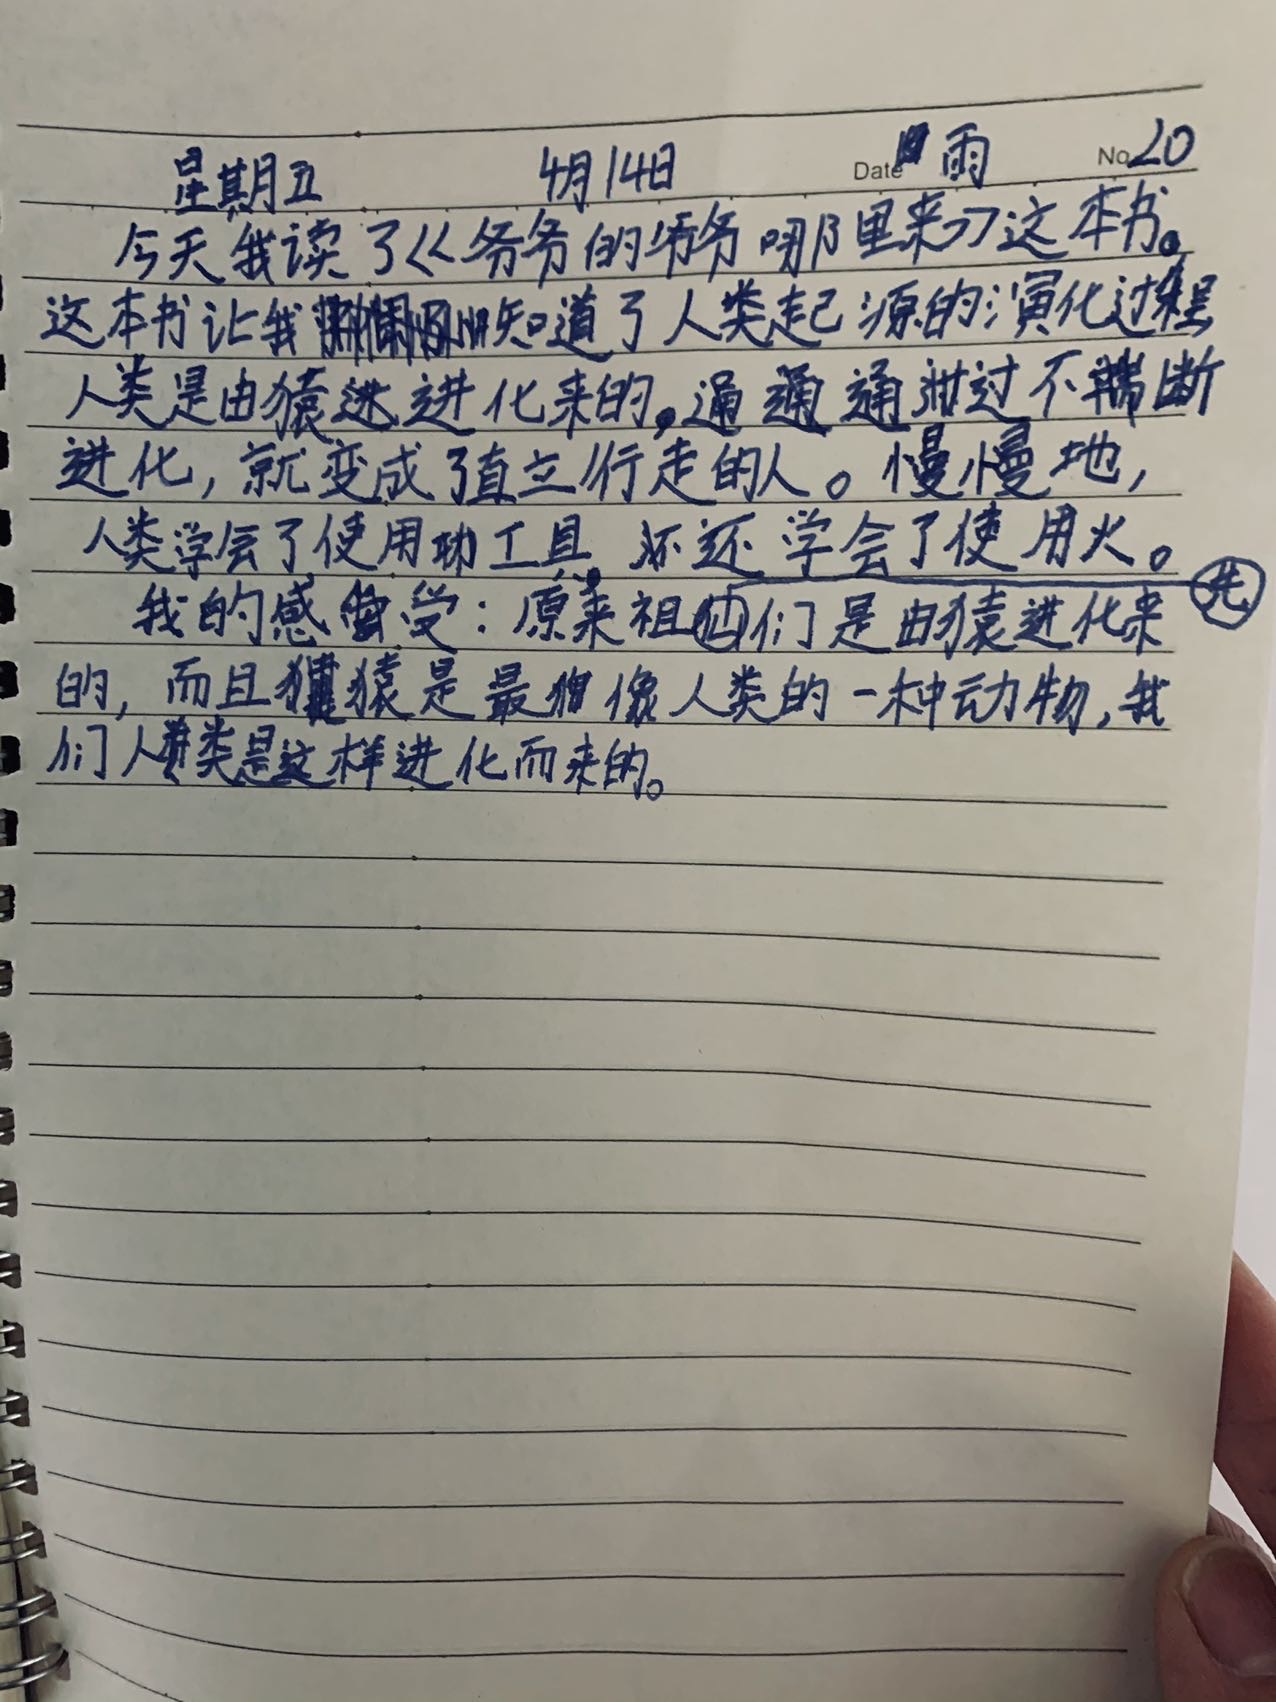 星期五 4月14日 Date 雨 No. 20
今天我读了《爷爷的爷爷哪里来》这本书。
这本书让我知道了人类起源的演化过程
人类是由猿进进化来的。通通通过不断
进化,就变成了直立行走的人。慢慢地,
人类学会了使用工具,还学会了使用火。
先
我的感受:原来祖们是由猿进化来
的,而且猿是最像人类的一种动物,我
们人类是这样进化而来的。